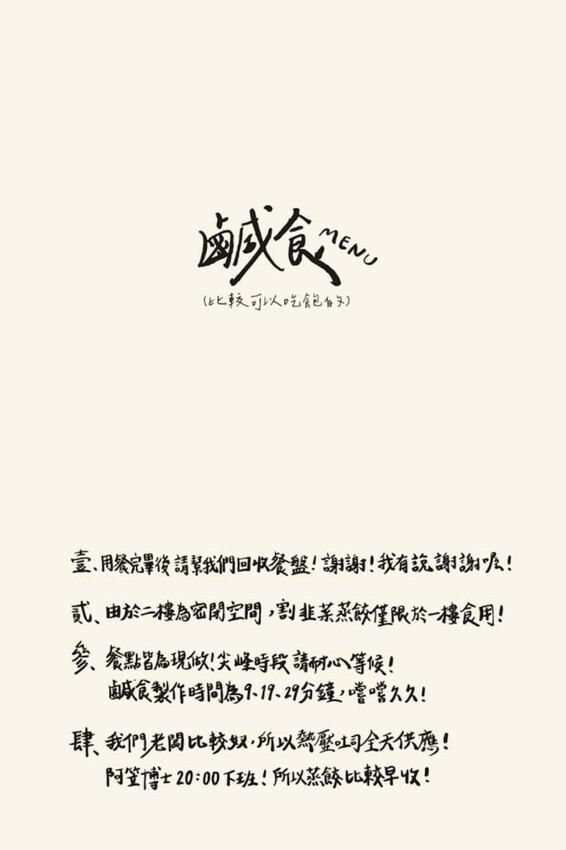 鹹食 MENU
(比較可以吃飽的)
壹、用餐完畢後請幫我們回收餐盤!謝謝!我有說謝謝喔!
貳、由於二樓為密閉空間,割韭菜蒸餃僅限於一樓食用!
參、餐點皆為現做!尖峰時段請耐心等候!
鹹食製作時間為9、19、29分鐘,嚐嚐久久!
肆、我們老闆比較奴,所以熱壓吐司全天供應!
阿笠博士20:00下班!所以蒸餃比較早收!